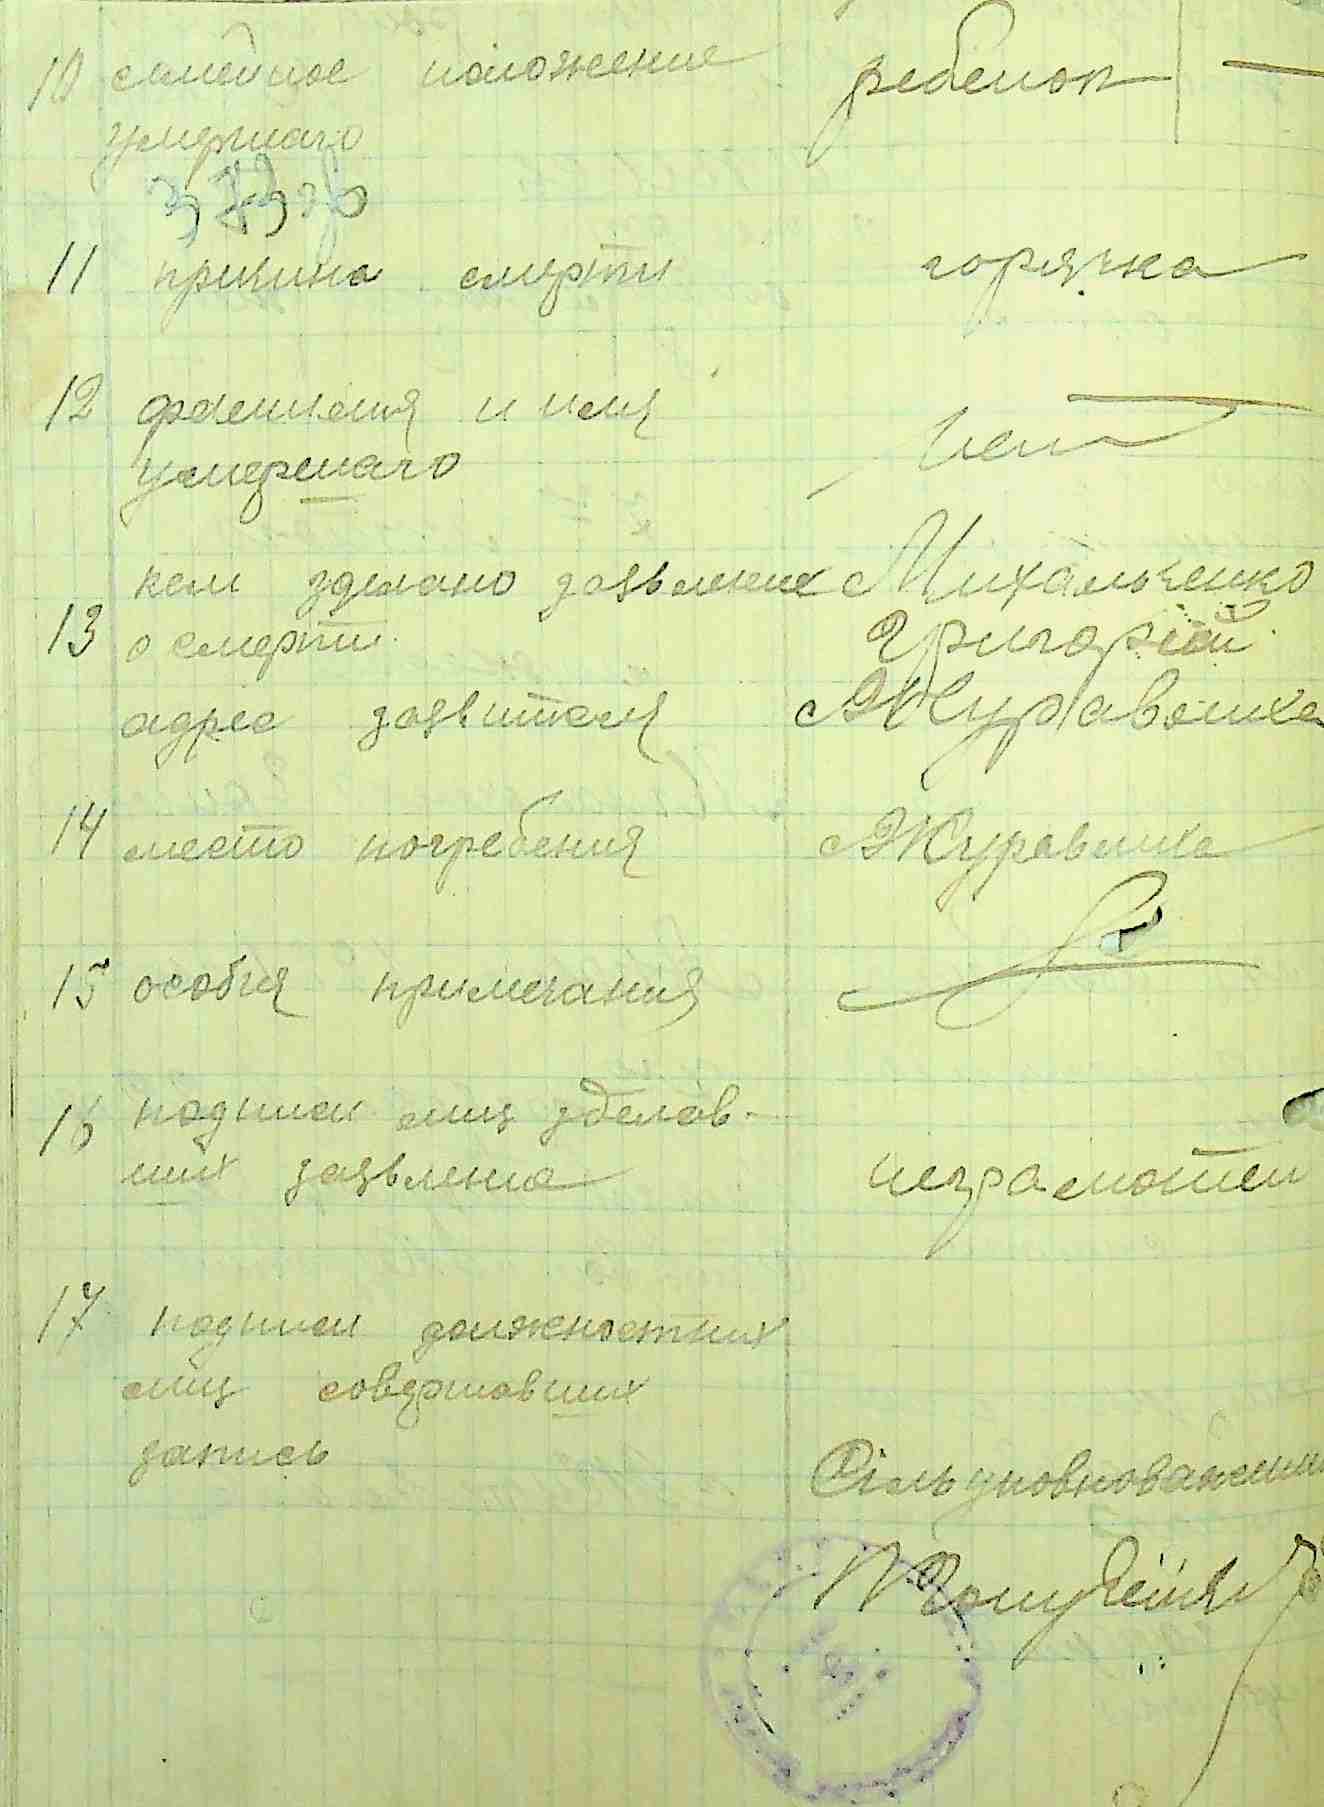 10 семейное положение ребенок
умершаго
11 причина смерти горячка
12 фамилия и имя нет
умершаго
кем зделано заявление Михальченко
13 о смерти Григорій
адрес заявителя Журавлиха
14 место погребения Журавлиха
15 особыя примечания
16 подписи лиц зделав-
ших заявление неграмотен
17 подписи должностних
лиц совершавших
запись
Сільуповноважений